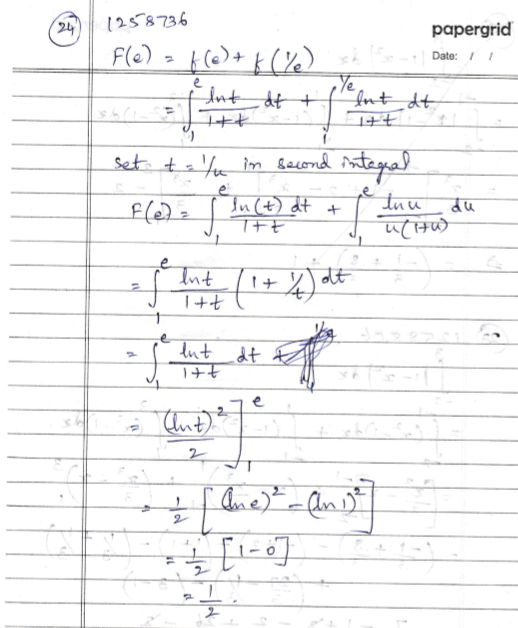 24 1258736
papergrid
Date: / /
F(e) = f(e) + f(1/e)
= ∫₁^e lnt/(1+t) dt + ∫₁^(1/e) lnt/(1+t) dt
set t = 1/u in second integral
F(e) = ∫₁^e ln(t) dt/(1+t) + ∫₁^e lnu/(u(1+u)) du
= ∫₁^e lnt/(1+t) (1 + 1/t) dt
= ∫₁^e lnt/(1+t) dt
= (lnt)²/2 ]₁^e
= 1/2 [(lne)² - (ln1)²]
= 1/2 [1-0]
= 1/2.